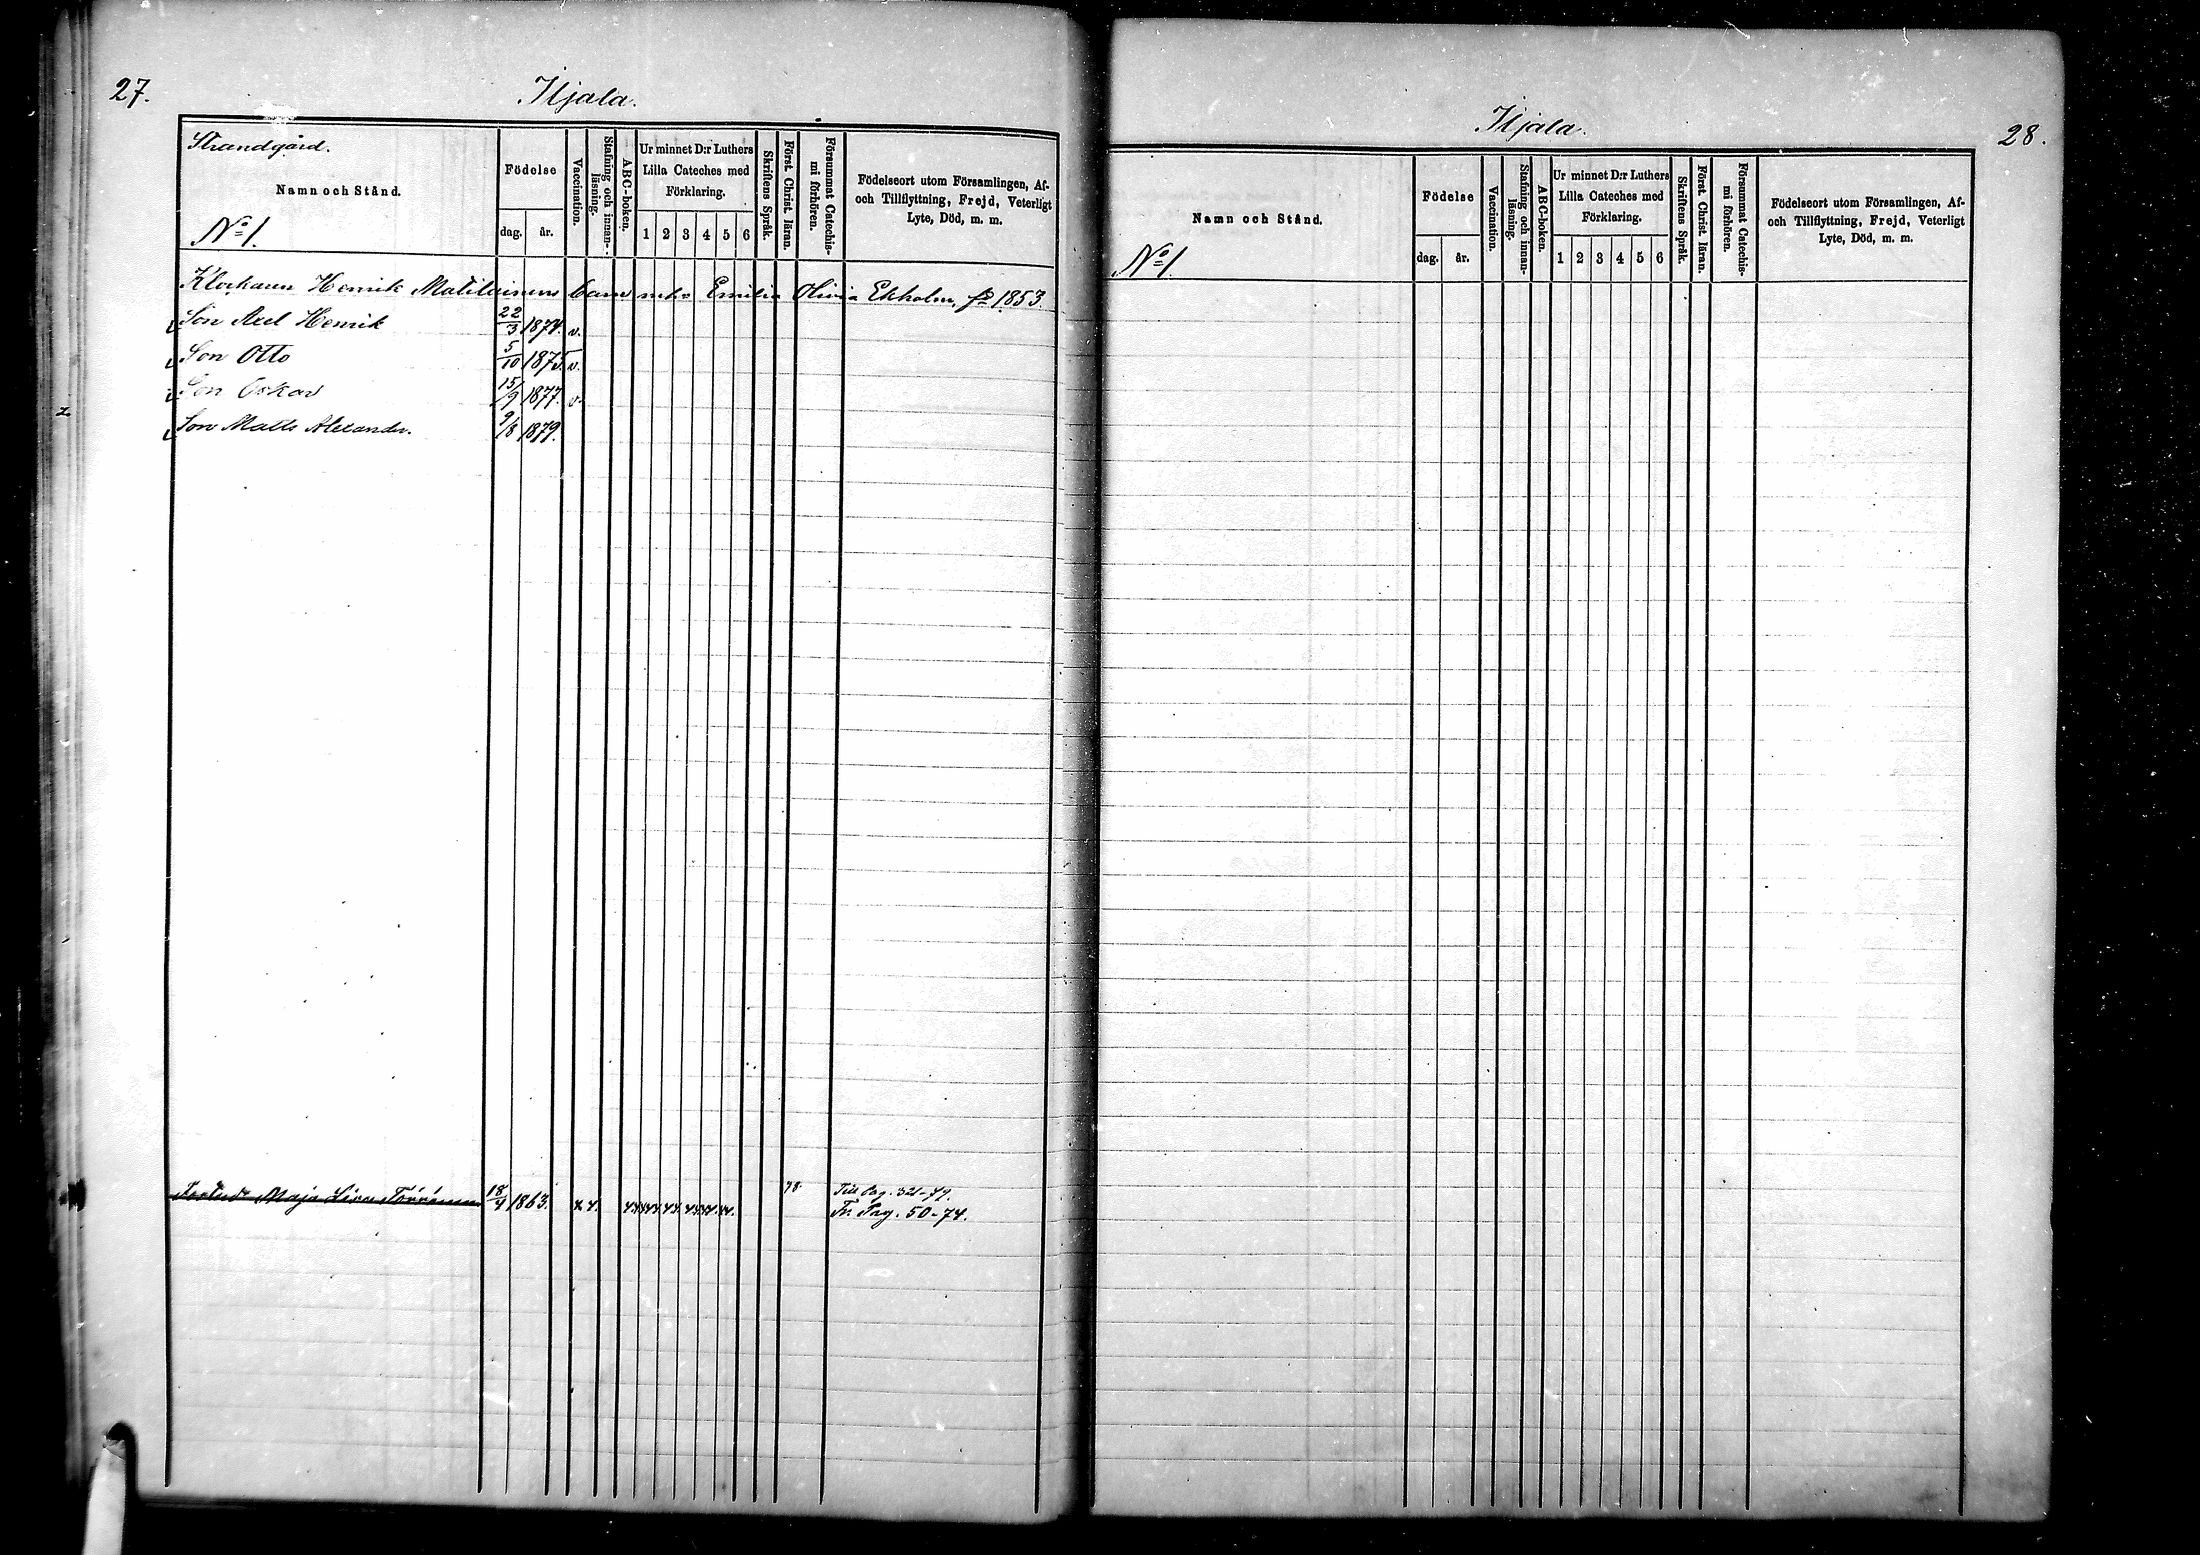 27.
Iljala.
Strandgård.
Namn och Stånd.
No 1.
Födelse
dag. år.
Vaccination.
Stafning och innan-läsning.
ABC-boken.
Ur minnet D:r Luthers
Lilla Cateches med
Förklaring.
1 2 3 4 5 6
Skriftens Språk.
Först. Christ. läran.
Försummat Catechis-
mi förhören.
Födelseort utom Församlingen, Af-
och Tillflyttning, Frejd, Veterligt
Lyte, Död, m. m.
Klockaren Henrik Matilainens barn m. Emilia Olivia Ekholm, f. 1853.
Son Axel Henrik 22/3 1874. v.
Son Otto 5/10 1875. v.
Son Oskar 15/9 1877. v.
Son Matts Alexander. 9/8 1879.
Maja Lisa 18/4 1863. 78. Till Pag. 321-79.
Fr. Pag. 50-74.
Iljala.
28.
Namn och Stånd.
No 1
Födelse
dag. år.
Vaccination.
Stafning och innan-
läsning.
ABC-boken.
Ur minnet D:r Luthers
Lilla Cateches med
Förklaring.
1 2 3 4 5 6
Skriftens Språk.
Först. Christ. läran.
Försummat Catechis-
mi förhören.
Födelseort utom Församlingen, Af-
och Tillflyttning, Frejd, Veterligt
Lyte, Död, m. m.